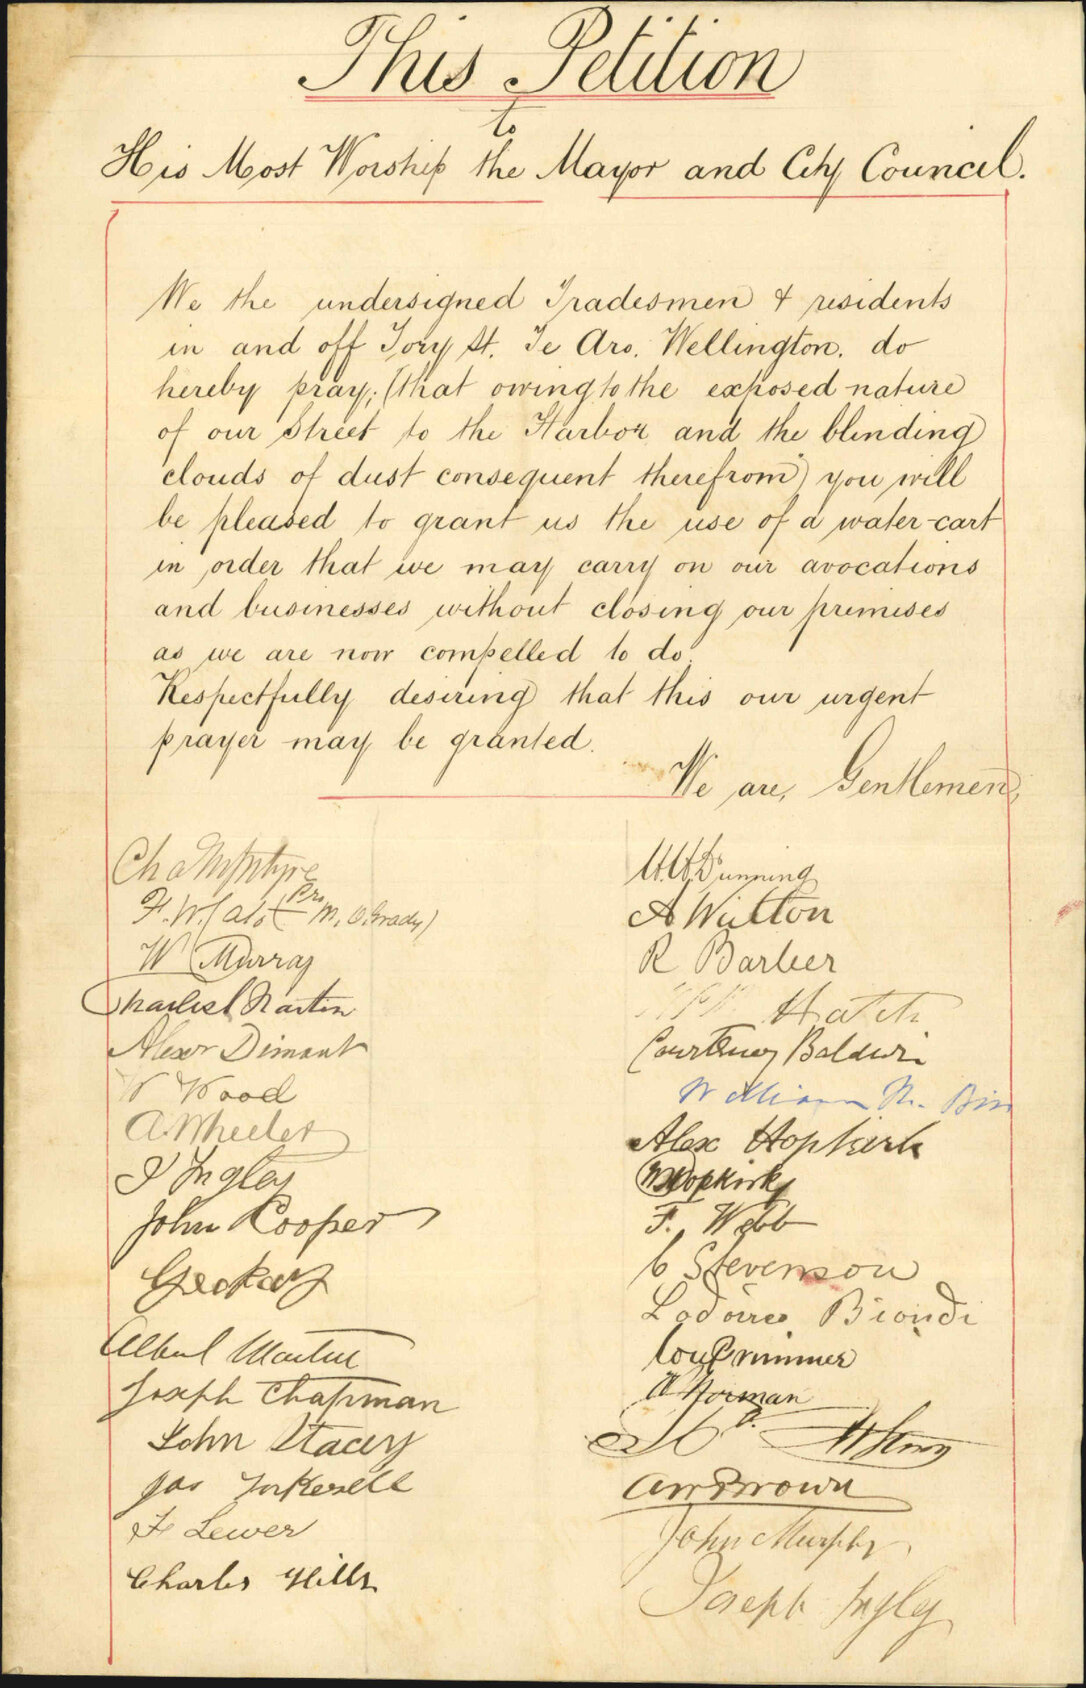 This Petition
to
His Most Worship the Mayor and City Council.
We the undersigned Tradesmen & residents
in and off Tory St. Te Aro. Wellington. do
hereby pray; (that owing to the exposed nature
of our Street to the Harbor and the blinding
clouds of dust consequent therefrom) you will
be pleased to grant us the use of a water-cart
in order that we may carry on our avocations
and businesses without closing our premises
as we are now compelled to do.
Respectfully desiring that this our urgent
prayer may be granted.
We are, Gentlemen,
Chas McIntyre
F. W. (pro M. O.Grady)
W Murray
Charles Martin
Alexr Dimant
W Wood
A. Wheeler
J Ingley
John Cooper
Albert Martin
Joseph Chapman
John Stacey
Jas
F Lewer
Charles Hills
Dunning
A Wilton
R Barber
Hatch
Courtenay Baldwin
William
Alex Hopkirk
Hopkirk
F. Webb
C Stevenson
Biondi
A Norman
Brown
John Murphy
Joseph Ingley